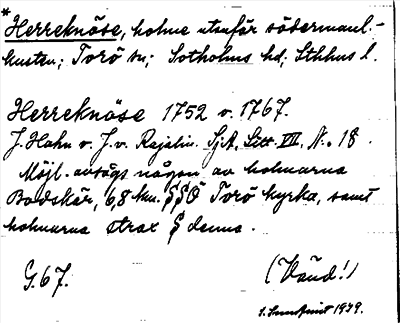 * Herreknöse, holme utanför södermanl.-
kusten; Torö sn; Sotholms hd; Sthlms l.
Herreknöse 1752 o. 1767.
J. Hahn o. J. v. Rajalin. SjA, Sztt. VII, N:o 18.
Möjl. avsågs någon av holmarna
Bodskär, 6,8 km. SSÖ Torö kyrka, samt
holmarna strax S denna.
G. 67.
(Vänd!)
1939.